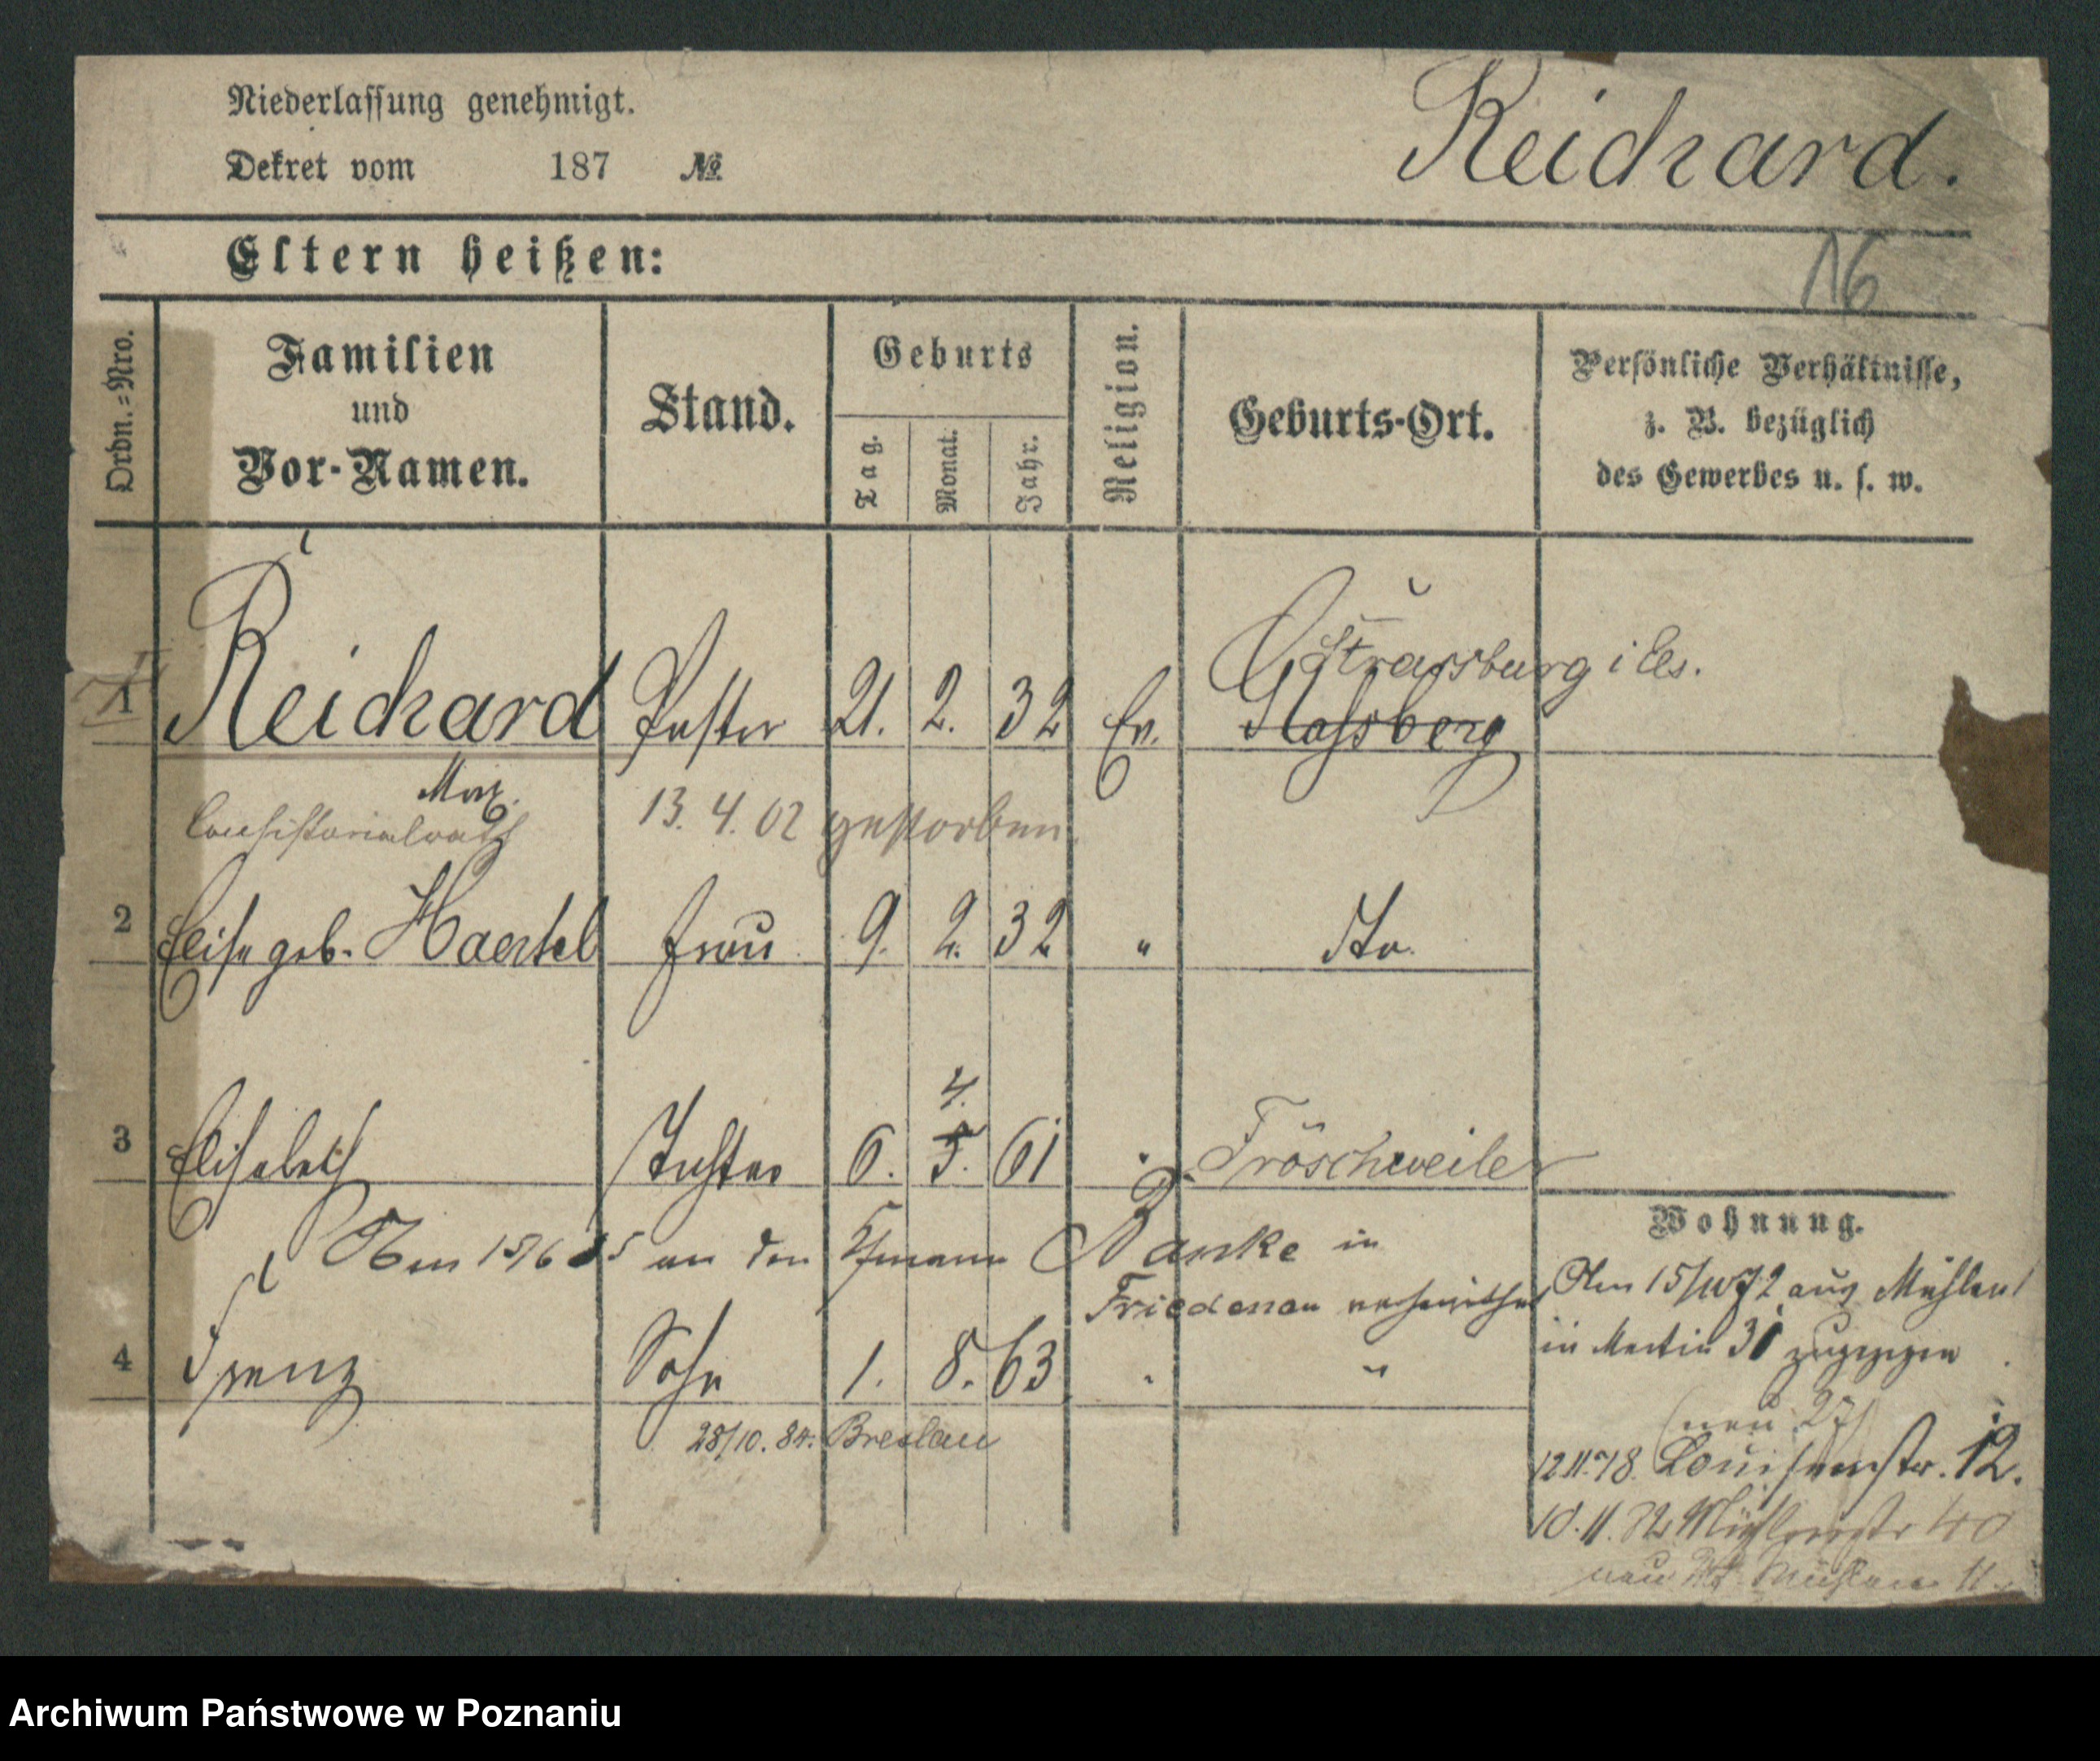 Niederlassung genehmigt.
Reichard.
Dekret vom 187 №
Eltern heißen:
16
Ordn.=Nro.
Familien
und
Vor-Namen.
Stand.
Geburts
Tag.
Monat.
Jahr.
Religion.
Geburts-Ort.
Persönliche Verhältnisse,
z. B. bezüglich
des Gewerbes u. s. w.
Strassburg i Els.
1 Reichard Pastor 21. 2. 32 Ev. Stassberg
Max.
Consistorialrath 13. 4. 02 gestorben.
2 Elise geb. Haertel Frau 9. 2. 32 " do.
4.
3 Elisabeth Tochter 6. 5. 61 " Fröschweiler
Am 15/6 85 an den Kfmann Banke in
Friedenau verheirathet
4 Franz Sohn 1. 8. 63 " "
28/10. 84. Breslau
Wohnung.
Am 15/10 72 aus Mühlen
in Martin 31 zugezogen
(neu 27)
12.11.78. Louisenstr. 12.
10.11. 82 Mühlenstr 40
neu Mühlen 11